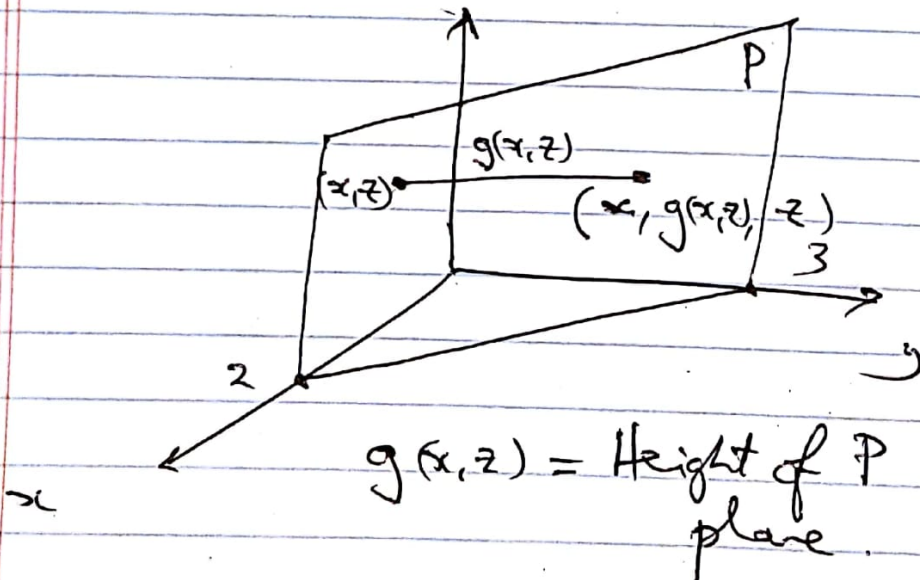 P
g(x,z)
(x,z)
(x, g(x,z), z)
3
y
2
x
g(x,z) = Height of P
plane.